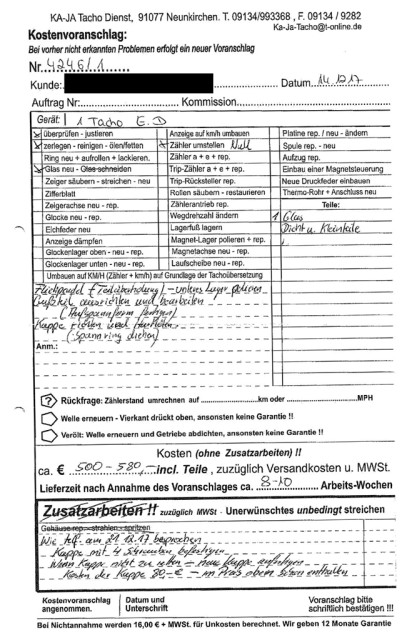 KA-JA Tacho Dienst, 91077 Neunkirchen. T. 09134/993368 , F. 09134 / 9282
Ka-Ja-Tacho@t-online.de
Kostenvoranschlag:
Bei vorher nicht erkannten Problemen erfolgt ein neuer Voranschlag
Nr. 4246/1
Kunde: Datum 14.12.17
Auftrag Nr: Kommission
Gerät: 1 Tacho E.D
überprüfen - justieren
zerlegen - reinigen - ölen/fetten
Ring neu + aufrollen + lackieren.
Glas neu - Glas schneiden
Zeiger säubern - streichen - neu
Zifferblatt
Zeigerachse neu - rep.
Glocke neu - rep.
Eichfeder neu
Anzeige dämpfen
Glockenlager oben - neu - rep.
Glockenlager unten - neu - rep.
Anzeige auf km/h umbauen
Zähler umstellen Null
Zähler a + e + rep.
Trip-Zähler a + e + rep.
Trip-Rücksteller rep.
Rollen säubern - restaurieren
Zählerantrieb rep.
Wegdrehzahl ändern
Lagerfuß lagern
Magnet-Lager polieren + rep.
Magnetachse neu - rep.
Laufscheibe neu - rep.
Platine rep. / neu - ändern
Spule rep. - neu
Aufzug rep.
Einbau einer Magnetsteuerung
Neue Druckfeder einbauen
Thermo-Rohr + Anschluss neu
Teile:
1 Glas
Dicht u. Kleinteile
Umbauen auf KM/H (Zähler + km/h) auf Grundlage der Tachoübersetzung
- unteres Lager polieren
ausrichten und bearbeiten
Kappe
(Spannring drehen)
Anm.:
Rückfrage: Zählerstand umrechnen auf km oder MPH
Welle erneuern - Vierkant drückt oben, ansonsten keine Garantie !!
Verölt: Welle erneuern und Getriebe abdichten, ansonsten keine Garantie !!
Kosten (ohne Zusatzarbeiten) !!
ca. € 500 - 580,- incl. Teile , zuzüglich Versandkosten u. MWSt.
Lieferzeit nach Annahme des Voranschlages ca. 8-10 Arbeits-Wochen
Zusatzarbeiten !! zuzüglich MWSt - Unerwünschtes unbedingt streichen
Gehäuse rep. - strahlen - spritzen
Wie telf. am 21.12.17 besprochen
Kappe mit 4 Schrauben befestigen
Wenn Kappe nicht zu retten - neue Kappe anfertigen
Kosten der Kappe 80,- € - im Preis oben schon enthalten
Kostenvoranschlag
angenommen.
Datum und
Unterschrift
Voranschlag bitte
schriftlich bestätigen !!!
Bei Nichtannahme werden 16,00 € + MWSt. für Unkosten berechnet. Wir geben 12 Monate Garantie